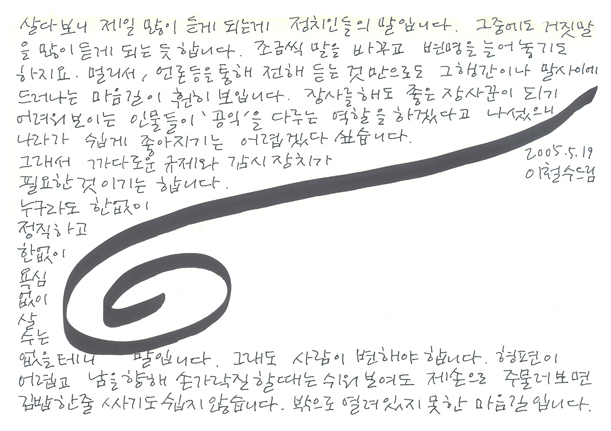 살다보니 제일 많이 듣게 되는게 정치인들의 말입니다. 그중에도 거짓말
을 많이 듣게 되는 듯 합니다. 조금씩 말을 바꾸고 변명을 늘어 놓기도
하지요. 멀리서, 언론등을 통해 전해 듣는 것 만으로도 그 행간이나 말사이에
드러나는 마음길이 훤히 보입니다. 장사를 해도 좋은 장사꾼이 되기
어려워 보이는 인물들이 '공익'을 다루는 역할을 하겠다고 나섰으니
나라가 쉽게 좋아지기는 어렵겠다 싶습니다.
그래서 까다로운 규제와 감시 장치가
필요한 것이기는 합니다.
2005.5.19
이철수드림
누구라도 한없이
정직하고
한없이
욕심
없이
살
수는
없을테니 말입니다. 그래도 사람이 변해야 합니다. 형편이
어렵고 남을 향해 손가락질 할때는 쉬워 보여도 제손으로 주물러보면
김밥 한줄 싸기도 쉽지 않습니다. 밖으로 열려있지 못한 마음길 입니다.